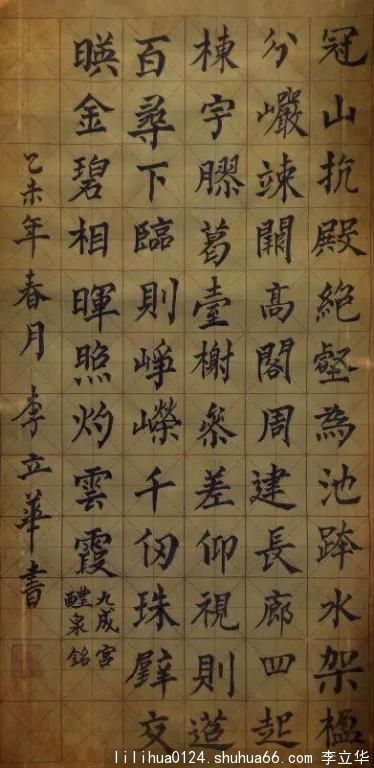 冠山抗殿絕壑為池跨水架楹
分巖竦闕高閣周建長廊四起
棟宇膠葛臺榭叅差仰視則迢
百尋下臨則崢嶸千仞珠璧交
暎金碧相暉照灼雲霞
九成宮
醴泉銘
乙未年春月 李立華書
lilihua0124.shuhua66.com 李立华